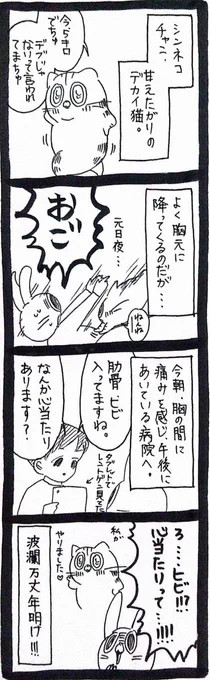 シンネコ
チャン、
甘えたがりの
デカイ猫。
今、5キロ
でちゃ
デブじゃ
ないって言われ
てまちゃ
よく胸元に
降ってくるのだが…
元日夜…
おご
今朝、胸の間に
痛みを感じ、午後に
あいている病院へ。
肋骨 ヒビ
入ってますね。
タブレットで
レントゲン見てる
なんか心当たり
あります?
ろ……ヒビ!!?
心当たりって…!!!!
私が
やりました♡
波瀾万丈年明け!!!